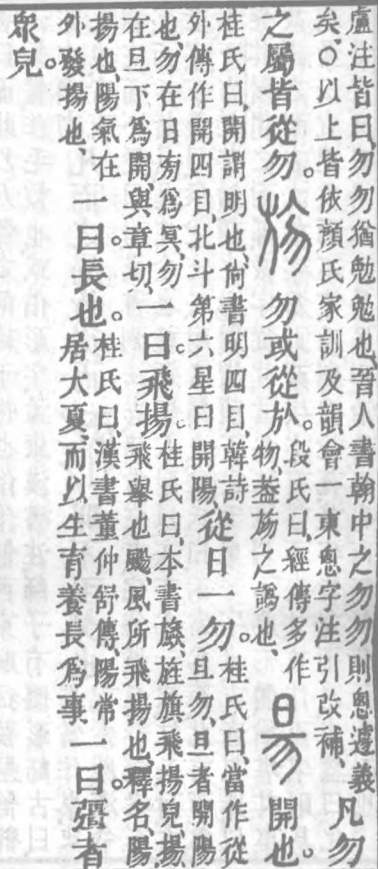 盧注皆曰、勿勿猶勉勉也、晉人書翰中之勿勿、則悤遽義
矣。〇以上皆依顏氏家訓及韻會一東悤字注引改補、凡勿
之屬皆從勿。㫃勿或從㫃。段氏曰、經傳多作物、葢㫃之譌也、昜開也。
桂氏曰、開謂明也、尙書明四目、韓詩
外傳作開四目、北斗第六星曰開陽、從日一勿。桂氏曰、當作從旦勿、旦者開陽
也、勿在日旁爲㫚、勿在旦下爲開、與章切、一曰飛揚。桂氏曰、本書㫃、旌旗飛揚皃、揚、
飛舉也、颺、風所飛揚也、釋名、陽、
揚也、陽氣在外發揚也、一曰長也。桂氏曰、漢書董仲舒傳、陽常居大夏、而以生育養長爲事、一曰彊者
衆皃。